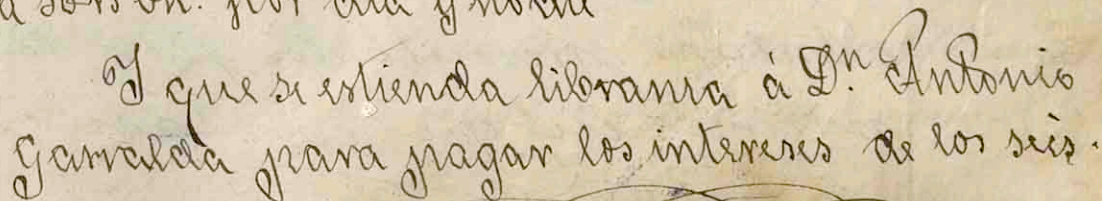 por dia y noche
Y que se estienda libranza á Dn. Antonio
Garralda para pagar los intereses de los seis.